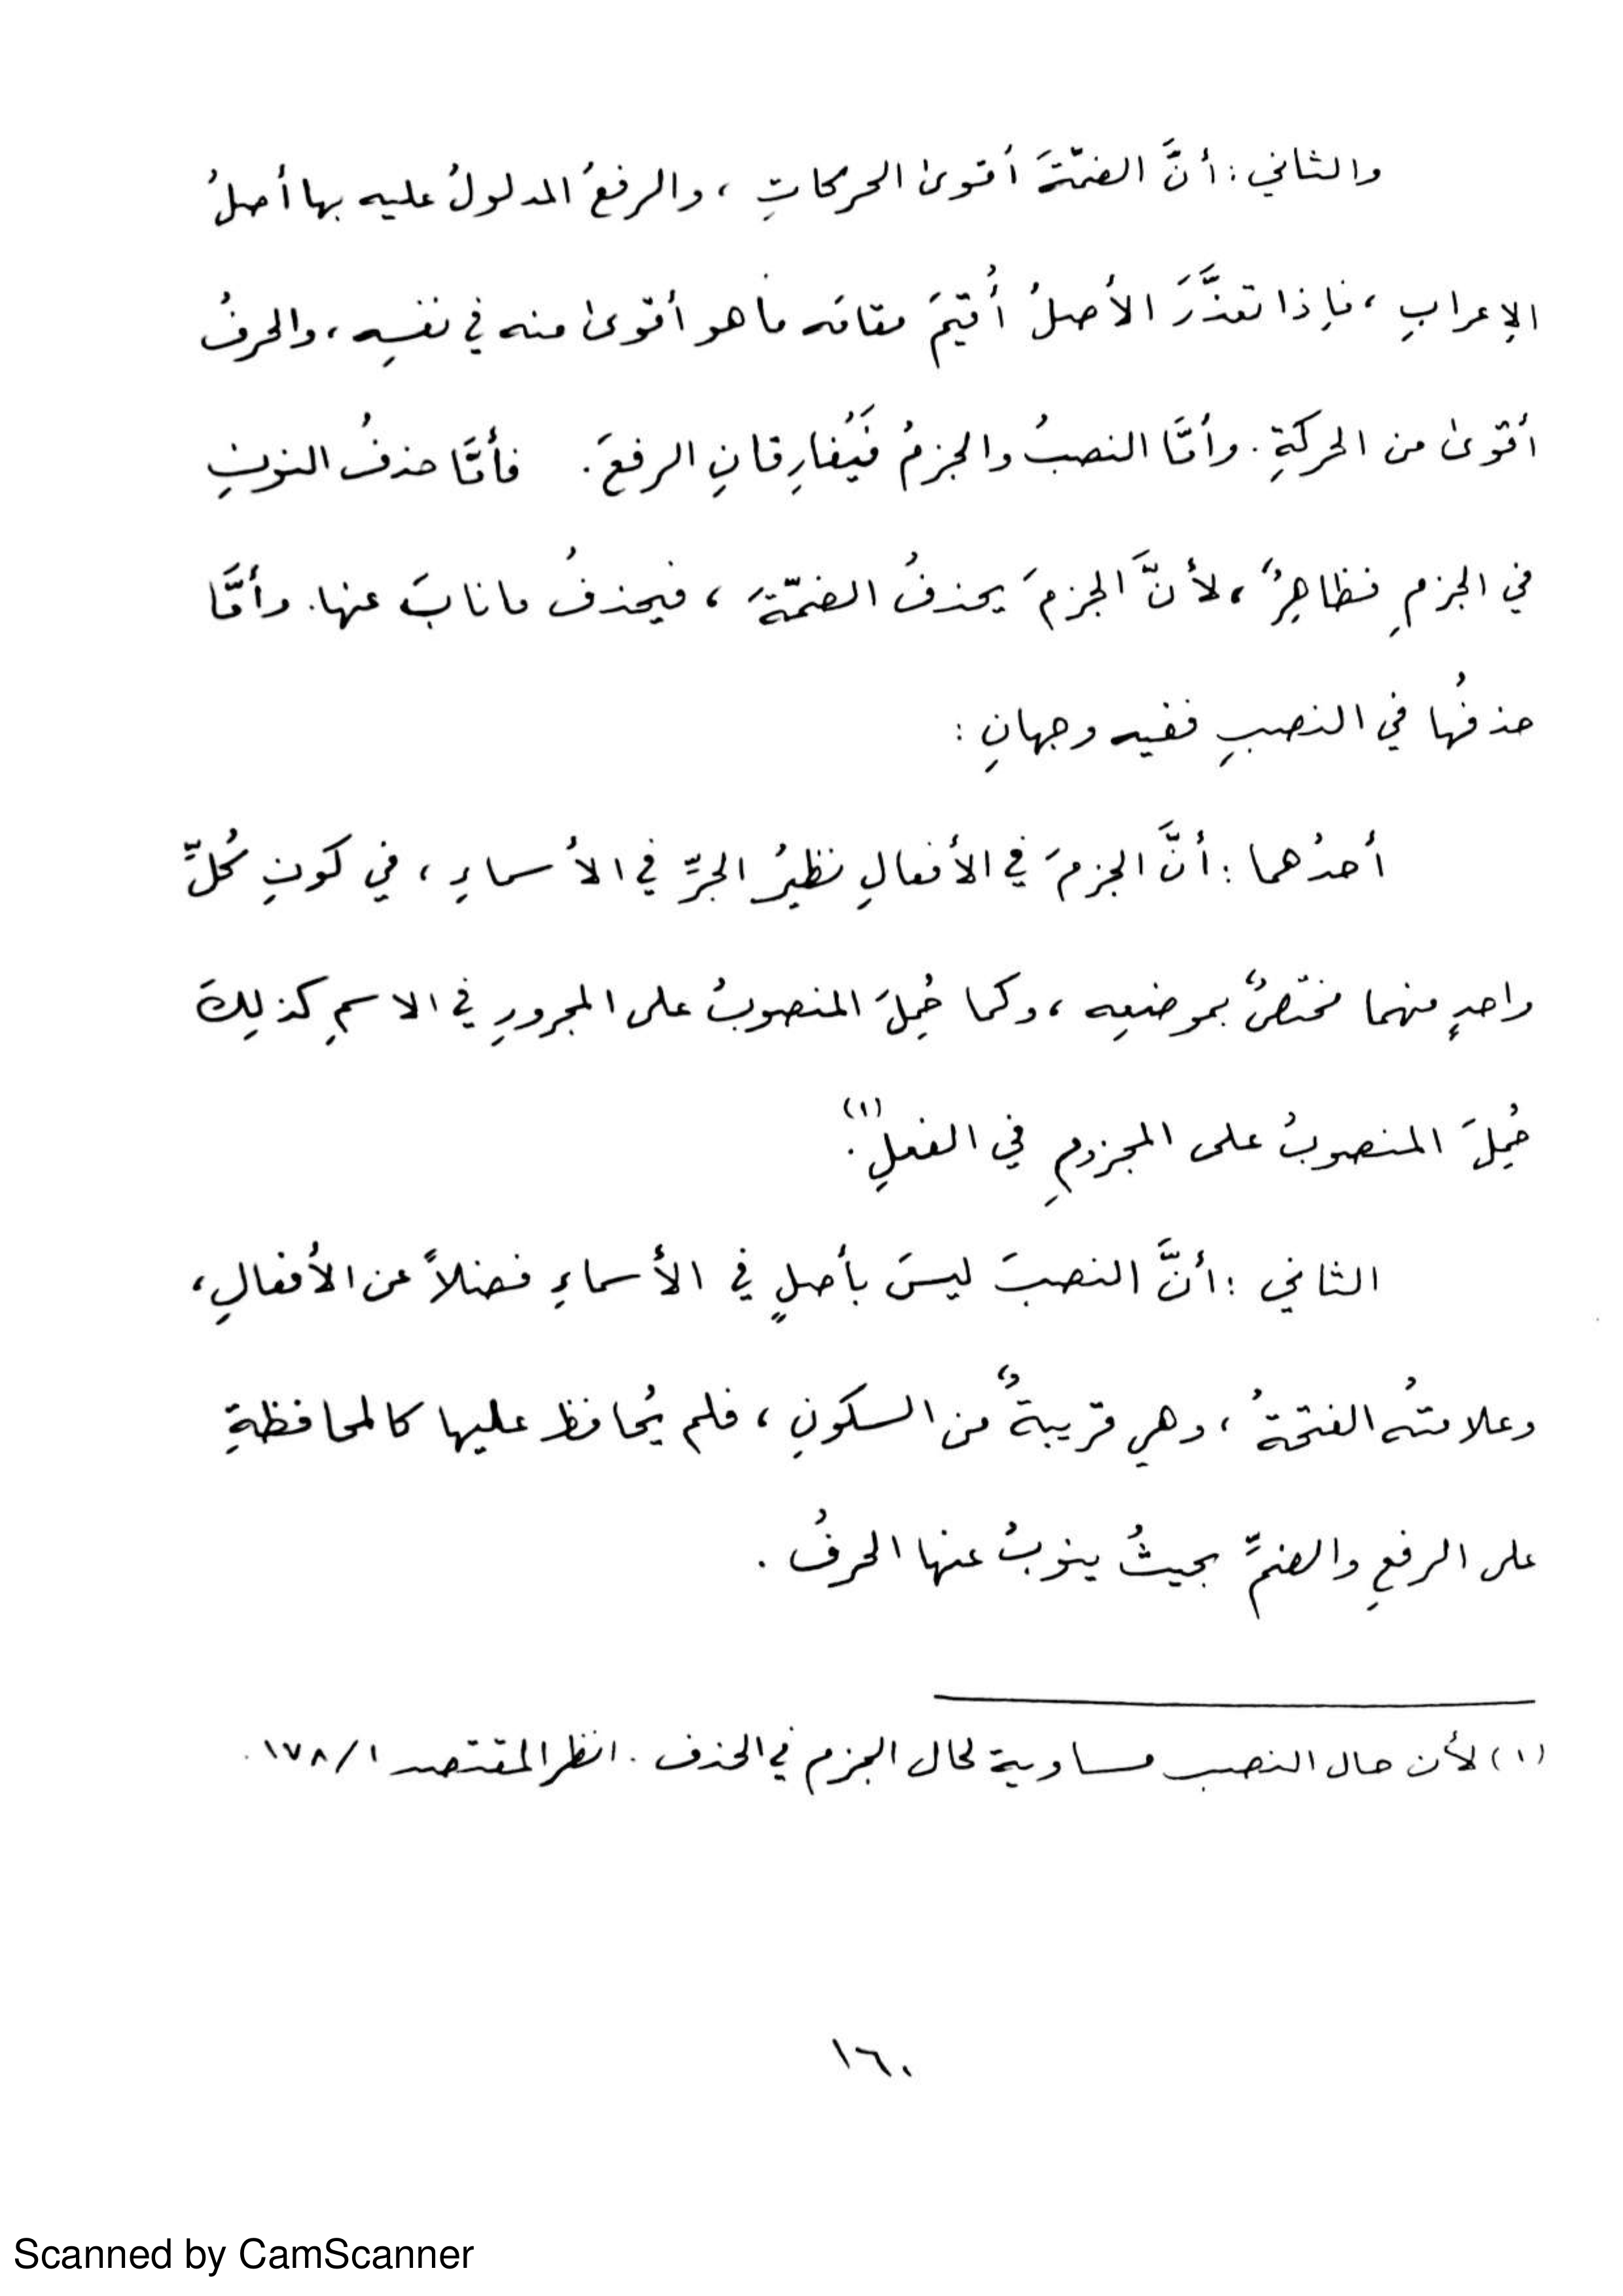 والثاني : أنَّ الضمّةَ أقوىٰ الحركاتِ ، والرفعُ المدلولُ عليه بها أصلُ
الإعرابِ ، فإذا تعذَّرَ الأصلُ أُقيمَ مقامَه ما هو أقوىٰ منه في نفسِه ، والحرفُ
أقوىٰ من الحركةِ . وأمَّا النصبُ والجزمُ فَيُفارِقانِ الرفعَ . فأمَّا حذفُ النونِ
في الجزمِ فظاهِرٌ ، لأنَّ الجزمَ يحذفُ الضمّةَ ، فيحذفُ ما نابَ عنها . وأمَّا
حذفُها في النصبِ ففيه وجهانِ :
أحدُهما : أنَّ الجزمَ في الأفعالِ نظيرُ الجرِّ في الأسماءِ ، في كونِ كُلِّ
واحدٍ منهما مختصٌّ بموضعِه ، وكما حُمِلَ المنصوبُ على المجرورِ في الاسمِ كذلِكَ
حُمِلَ المنصوبُ على المجزومِ في الفعلِ (١) .
الثاني : أنَّ النصبَ ليسَ بأصلٍ في الأسماءِ فضلاً عن الأفعالِ ،
وعلامتُه الفتحةُ ، وهي قريبةٌ من السكونِ ، فلم يُحافظ عليها كالمحافظةِ
على الرفعِ والضمِّ بحيثُ ينوبُ عنها الحرفُ .
(١) لأن حال النصب مساوية لحال الجزم في الحذف . انظر المقتصد ١/ ١٧٨ .
١٦٠
Scanned by CamScanner